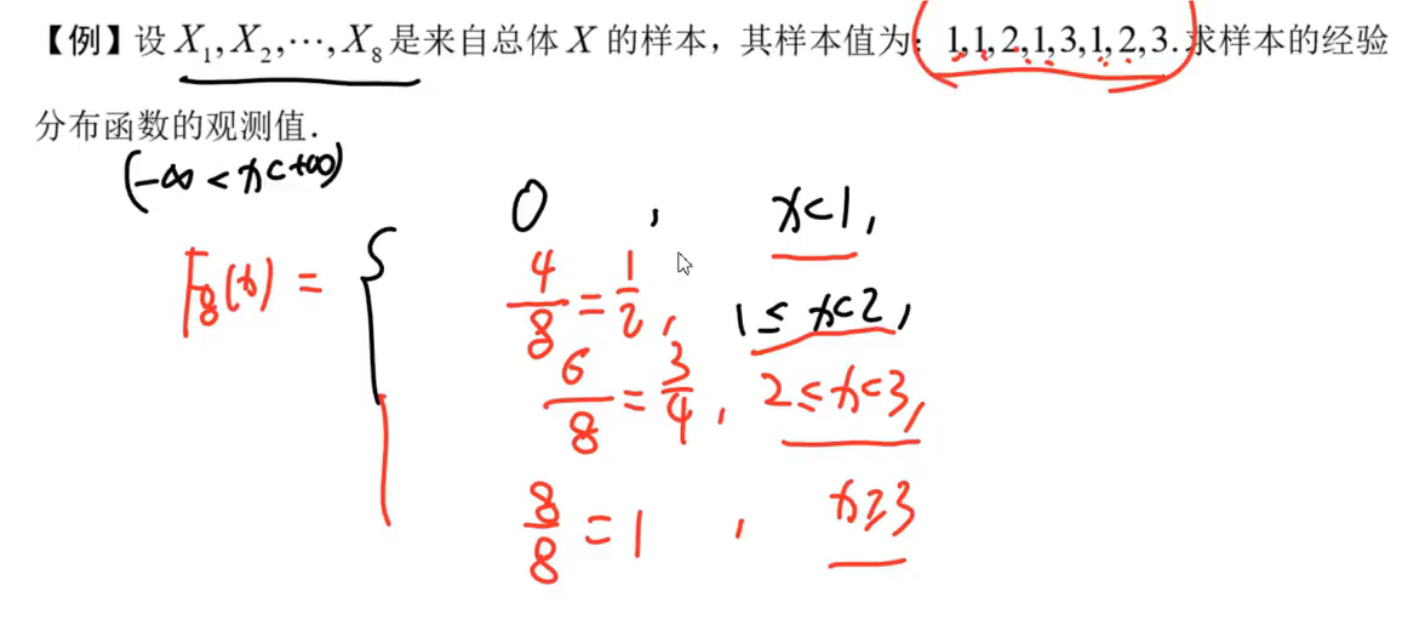 【例】设 X₁, X₂, ⋯, X₈ 是来自总体 X 的样本，其样本值为：1,1,2,1,3,1,2,3.求样本的经验
分布函数的观测值.
(-∞ < x < +∞)
0 , x<1,
F₈(x) = { 4/8 = 1/2, 1 ≤ x<2,
6/8 = 3/4, 2 ≤ x<3,
8/8 = 1 , x≥3